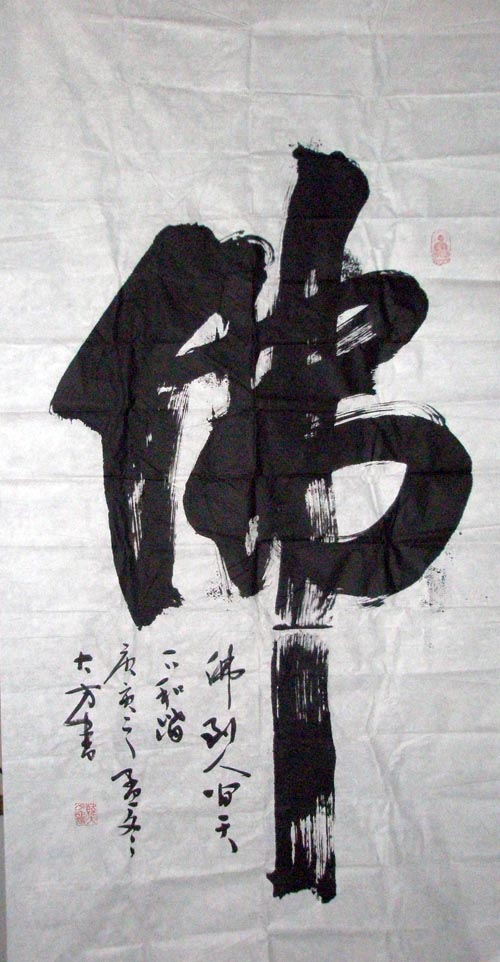 佛
佛到人间天
下和谐
庚寅之孟冬
大方書